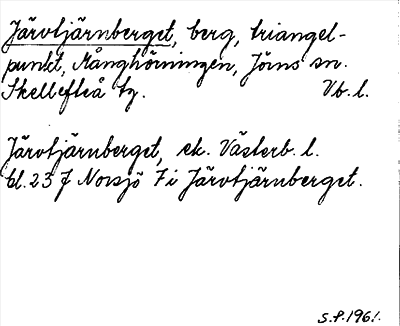 Järvtjärnberget, berg, triangel-
punkt, Månghörningen, Jörns sn.
Skellefteå tg. Vb. l.
Järvtjärnberget, ek. Västerb. l.
bl. 23 J Norsjö 7 i Järvtjärnberget.
S.P. 1961.